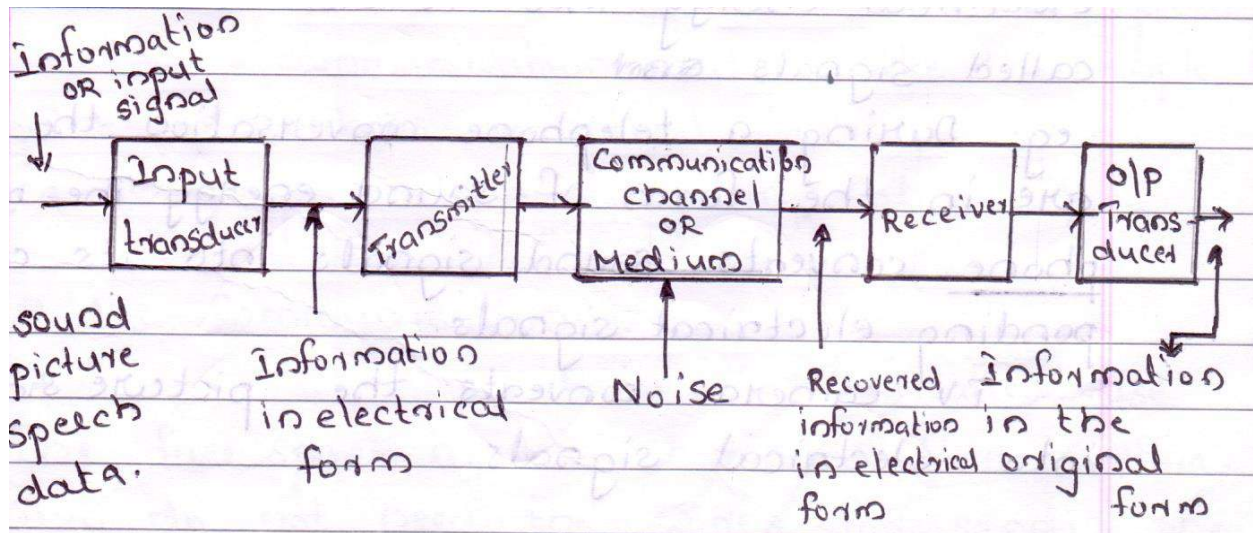 Information
OR input
signal
Input
transducer
Transmitter
Communication
channel
OR
Medium
Receiver
O/P
Trans
ducer
sound
picture
speech
data.
Information
in electrical
form
Noise
Recovered
information
in electrical
form
Information
in the
original
form